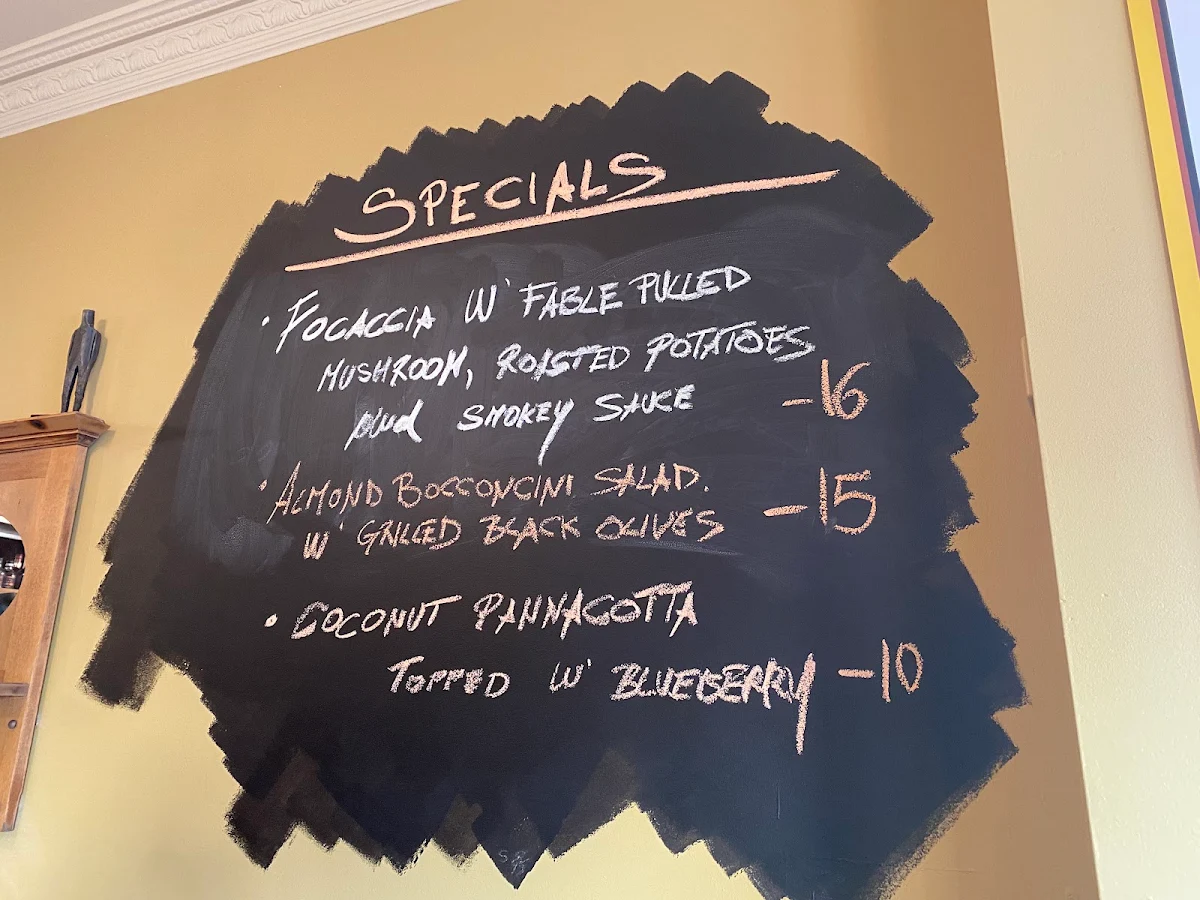 SPECIALS
• FOCACCIA W' FABLE PULLED
MUSHROOM, ROASTED POTATOES
and SMOKEY SAUCE -16
• ALMOND BOCCONCINI SALAD.
W' GRILLED BLACK OLIVES -15
• COCONUT PANNACOTTA
TOPPED W' BLUEBERRY -10